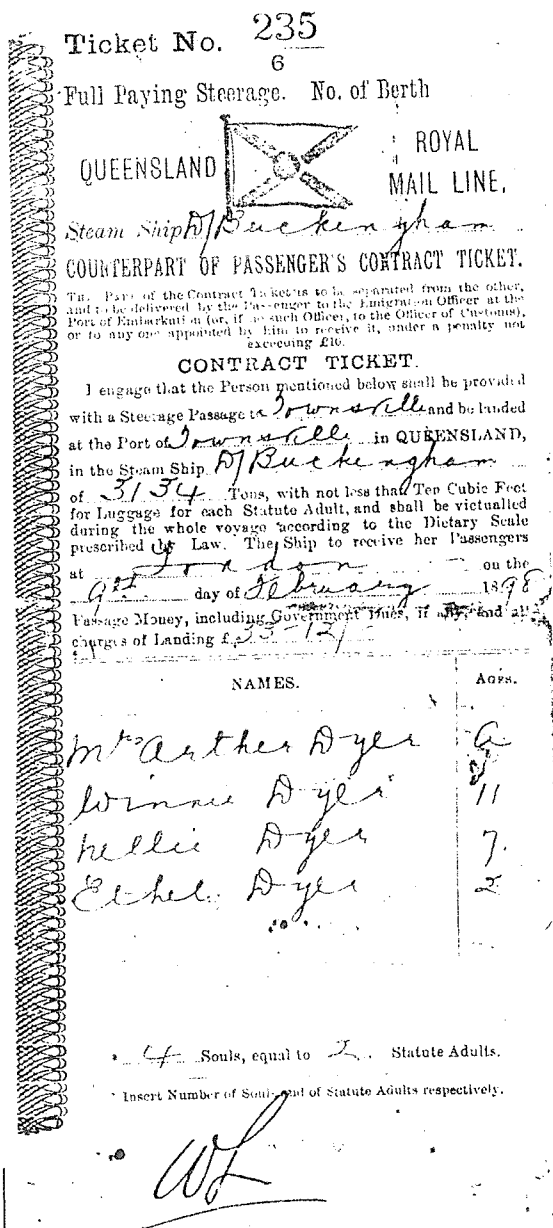 Ticket No. 235
6
Full Paying Steerage. No. of Berth
QUEENSLAND ROYAL
MAIL LINE,
Steam Ship D/Buckingham
COUNTERPART OF PASSENGER'S CONTRACT TICKET.
This Part of the Contract Ticket is to be separated from the other,
and to be delivered by the Passenger to the Emigration Officer at the
Port of Embarkation (or, if no such Officer, to the Officer of Customs),
or to any one appointed by him to receive it, under a penalty not
exceeding £10.
CONTRACT TICKET.
I engage that the Person mentioned below shall be provided
with a Steerage Passage to Townsville and be landed
at the Port of Townsville in QUEENSLAND,
in the Steam Ship D/Buckingham
of 3134 Tons, with not less that Ten Cubic Feet
for Luggage for each Statute Adult, and shall be victualled
during the whole voyage according to the Dietary Scale
prescribed by Law. The Ship to receive her Passengers
at London on the
day of February 1898
Passage Money, including Government Dues, if any, and all
charges of Landing £33-12/-
NAMES. AGES.
Mrs Arther Dyer a
Winnie Dyer 11
Nellie Dyer 7.
Ethel Dyer 2
* 4 Souls, equal to 2. Statute Adults.
* Insert Number of Souls and of Statute Adults respectively.
WL